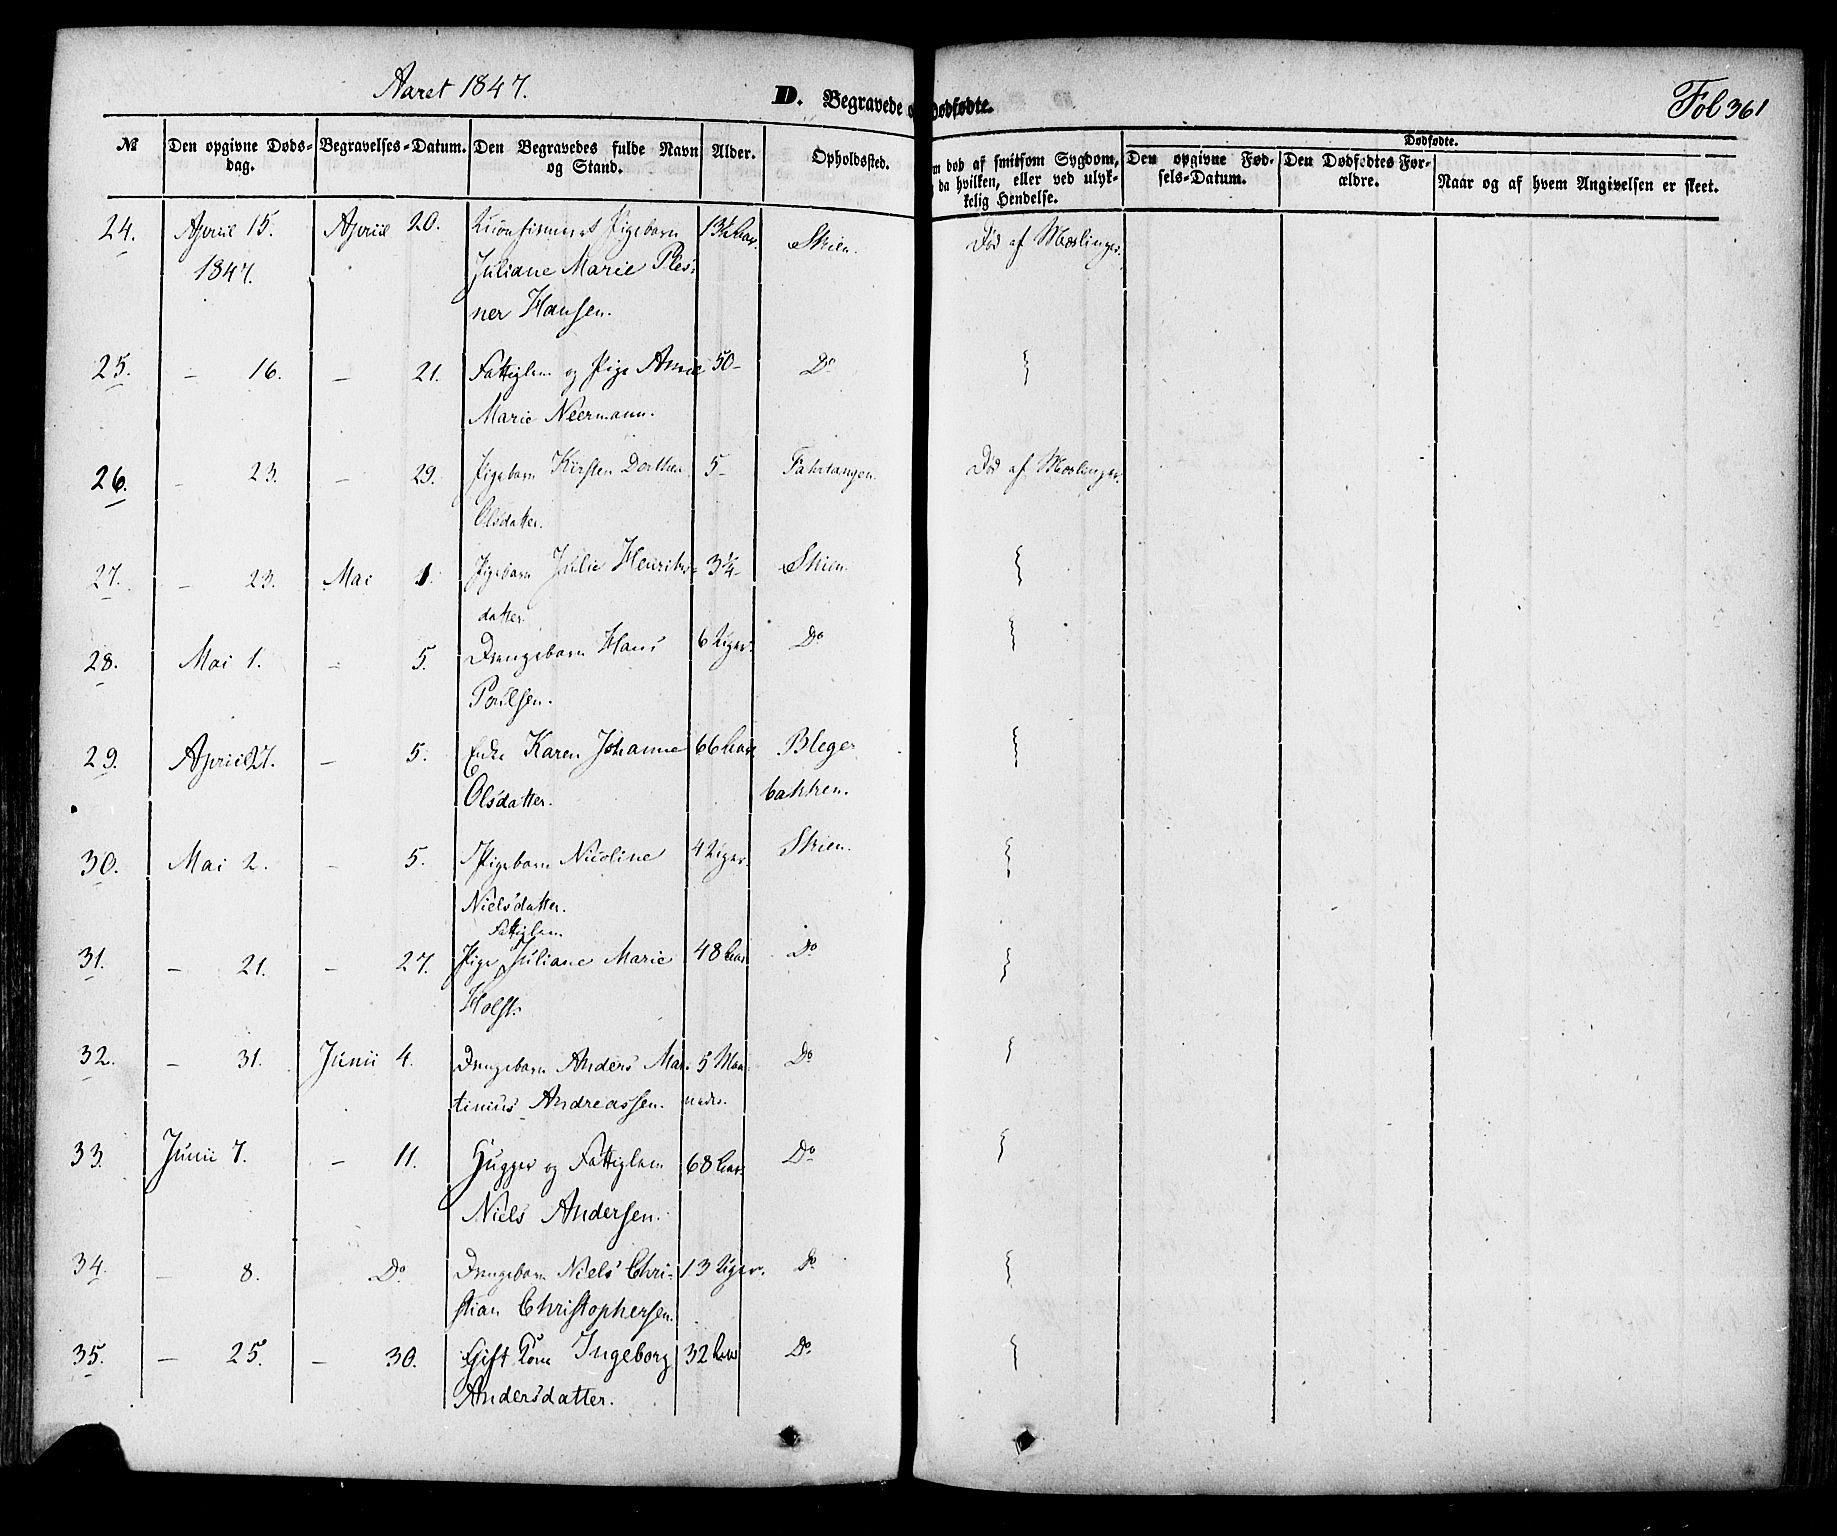 Aaret 1847.
D. Begravede o Dødfødte.
Fol 361
№
Den opgivne Døds-
dag.
Begravelses-Datum.
Den Begravedes fulde Navn
og Stand.
Alder.
Opholdssted.
m død af smitsom Sygdom,
da hvilken, eller ved ulyk-
kelig Hendelse.
Dødfødte.
Den opgivne Fød-
sels-Datum.
Den Dødfødtes For-
ældre.
Naar og af hvem Angivelsen er skeet.
24. Apriil 15. Apriil 20. Uconfirmeret Pigebarn Skien. Død af Mæslinger.
1847. Juliane Marie Ples-
ner Hansen.
25. — 16. — 21. Fattiglem og Pige Anne 50- Do
Marie Neermann.
26. — 23. — 29. Pigebarn Kirsten Dorthea 5- Død af Mæslinger.
Olsdatter.
27. — 23. Mai 1. Pigebarn Julie Henriks- 3¼- Skien.
datter
28. Mai 1. — 5. Drengebarn Hans 6 Uger. Do
Poulsen.
29. Apriil 27. — 5. Enke Karen Johanne 66 Aar Blege-
Olsdatter. bakken.
30. Mai 2. — 5. Pigebarn Nicoline 4 Uger. Skien.
Nielsdatter.
Fattiglem
31. — 21. — 27. Pige Juliane Marie 48 Aar Do
Holst.
32. — 31. Junii 4. Drengebarn Anders Mar- 5 Maa- Do
tinius Andreassen. neder.
33. Junii 7. — 11. Hugger og Fattiglem 68 Aar Do
Niels Andersen.
34. — 8. Do Drengebarn Niels Chri- 13 Uger. Do
stian Christophersen.
35. — 25. — 30. Gift Kone Ingeborg 32 Aar Do
Andersdatter.